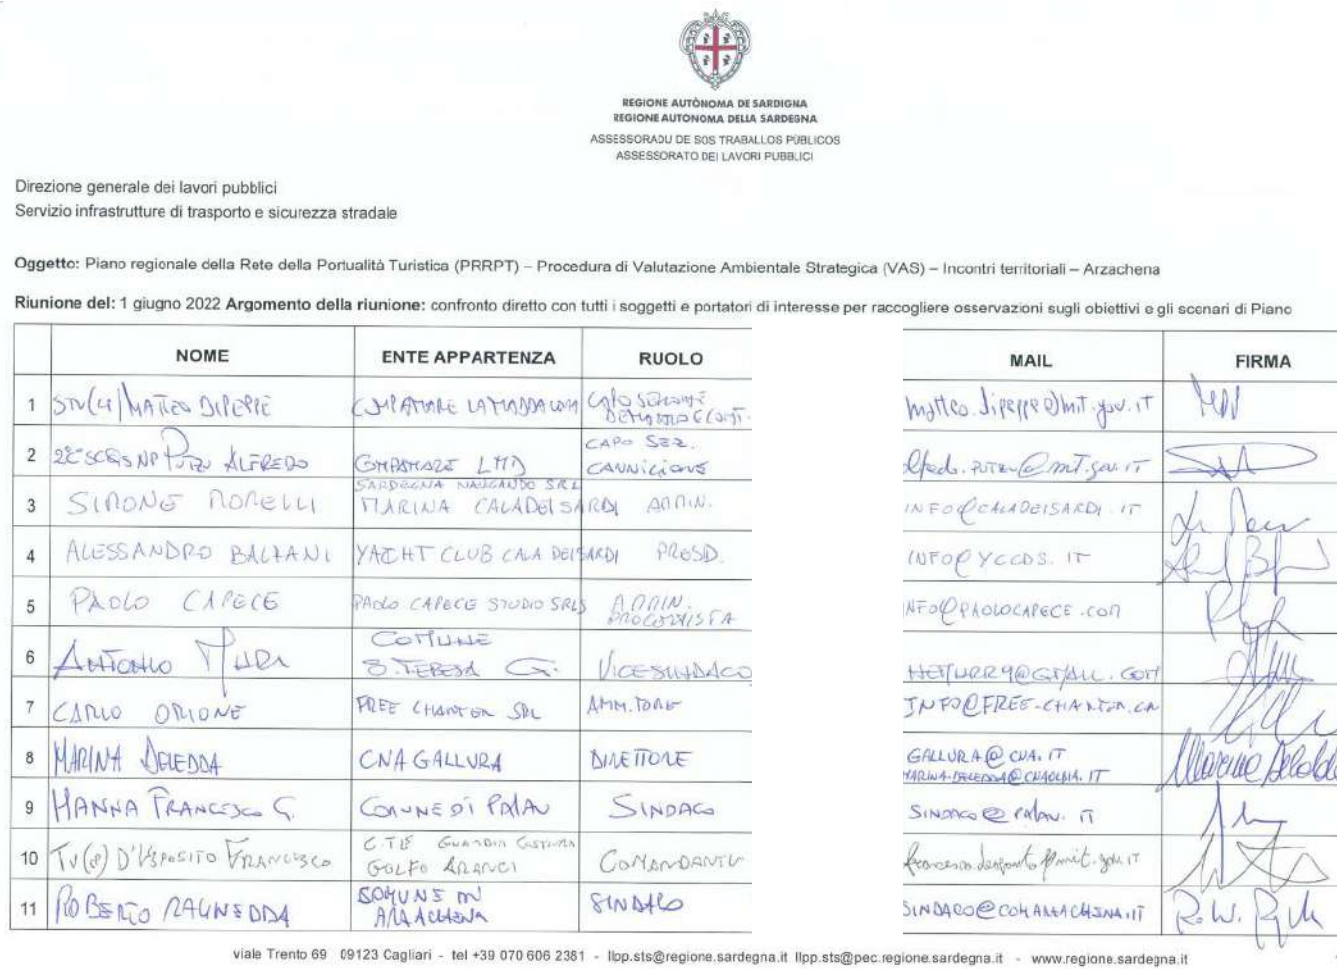 REGIONE AUTÒNOMA DE SARDIGNA
REGIONE AUTONOMA DELLA SARDEGNA
ASSESSORADU DE SOS TRABALLOS PÚBLICOS
ASSESSORATO DEI LAVORI PUBBLICI
Direzione generale dei lavori pubblici
Servizio infrastrutture di trasporto e sicurezza stradale
Oggetto: Piano regionale della Rete della Portualità Turistica (PRRPT) – Procedura di Valutazione Ambientale Strategica (VAS) – Incontri territoriali – Arzachena
Riunione del: 1 giugno 2022 Argomento della riunione: confronto diretto con tutti i soggetti e portatori di interesse per raccogliere osservazioni sugli obiettivi e gli scenari di Piano
NOME ENTE APPARTENZA RUOLO MAIL FIRMA
1 MATTEO DIPEPPE COMPAMARE LA MADDALENA CAPO SEZIONE DEMANIO E CONT. matteo.dipeppe@mit.gov.it
2 2°SCGS NP PUTZU ALFREDO COMPAMARE LMD CAPO SEZ.
3 SIMONE MORELLI SARDEGNA NAVIGANDO SRL MARINA CALADEISARDI AMMIN. INFO@CALADEISARDI.IT
4 ALESSANDRO BALZANI YACHT CLUB CALA DEISARDI PRESID. INFO@YCCDS.IT
5 PAOLO CAPECE PAOLO CAPECE STUDIO SRLS AMMIN. PROGETTISTA INFO@PAOLOCAPECE.COM
6 ANTONIO COMUNE S.TERESA G. VICESINDACO
7 CARLO ORIONE FREE CHARTER SRL AMM.TORE INFO@FREE-CHARTER.
8 MARINA DELEDDA CNA GALLURA DIRETTORE GALLURA@CNA.IT
MARINA.DELEDDA@CNAOLBIA.IT Marina Deledda
9 MANNA FRANCESCO G. COMUNE DI PALAU SINDACO SINDACO@PALAU.IT
10 D'ESPOSITO FRANCESCO GUARDIA COSTIERA GOLFO ARANCI COMANDANTE
11 ROBERTO RAGNEDDA COMUNE DI ARZACHENA SINDACO SINDACO@COMARZACHENA.IT
viale Trento 69 09123 Cagliari - tel +39 070 606 2381 - llpp.sts@regione.sardegna.it llpp.sts@pec.regione.sardegna.it - www.regione.sardegna.it